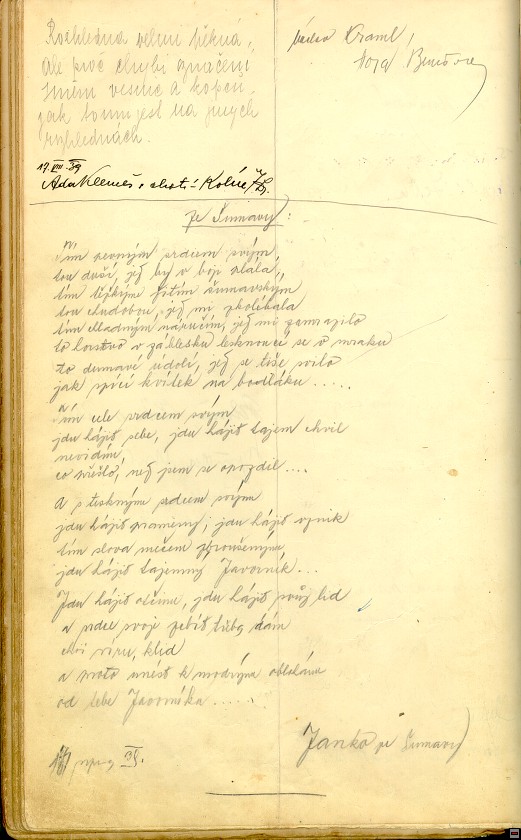 Rozhledna velmi pěkná,
ale proč chybí označení
jmén vesnic a kopců,
jak tomu jest na jiných
rozhlednách.
Václav Kraml,
17. VIII. 39
Ada Klemeš, choť: Kolín
ze Šumavy:
Tím pevným srdcem svým,
tou duší, jež by v boji plála,
tím těžkým žitím šumavským
tou chudobou, jež mi zkolébala
tím chladným náručím, jež mi zamrazilo
to horstvo v záblesku lesknoucí se v mraku
to dumavé údolí, jež se tiše svilo
jak spící kvítek na bodláku . . . . .
Tím cele srdcem svým
jdu hájit sebe, jdu hájit tajem chvil
nevidím,
co přešlo, než jsem se opozdil . . . .
A s teskným srdcem svým
jdu hájit prameny, jdu hájit vznik
tím slova mečem zbroušeným
jdu hájit tajemný Javorník . . .
Jdu hájit otčinu, jdu hájit svůj lid
a srdce svoje zabít třeba dám
chci víru, klid
a proto unést k modrým oblohám
od tebe Javorníka . . . . .
Janko ze Šumavy